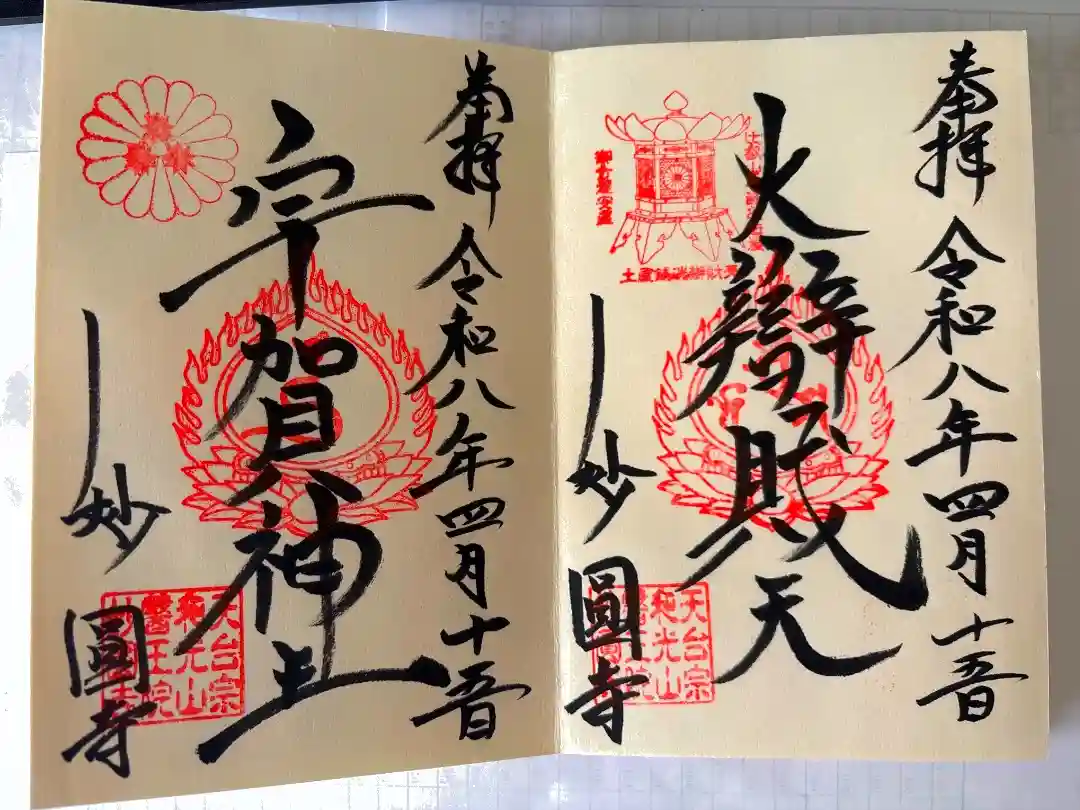 奉拝 令和八年四月十五日
大辯財天
天台宗
和光山
醫王院
妙圓寺
奉拝 令和八年四月十五日
宇賀神王
天台宗
和光山
醫王院
妙圓寺